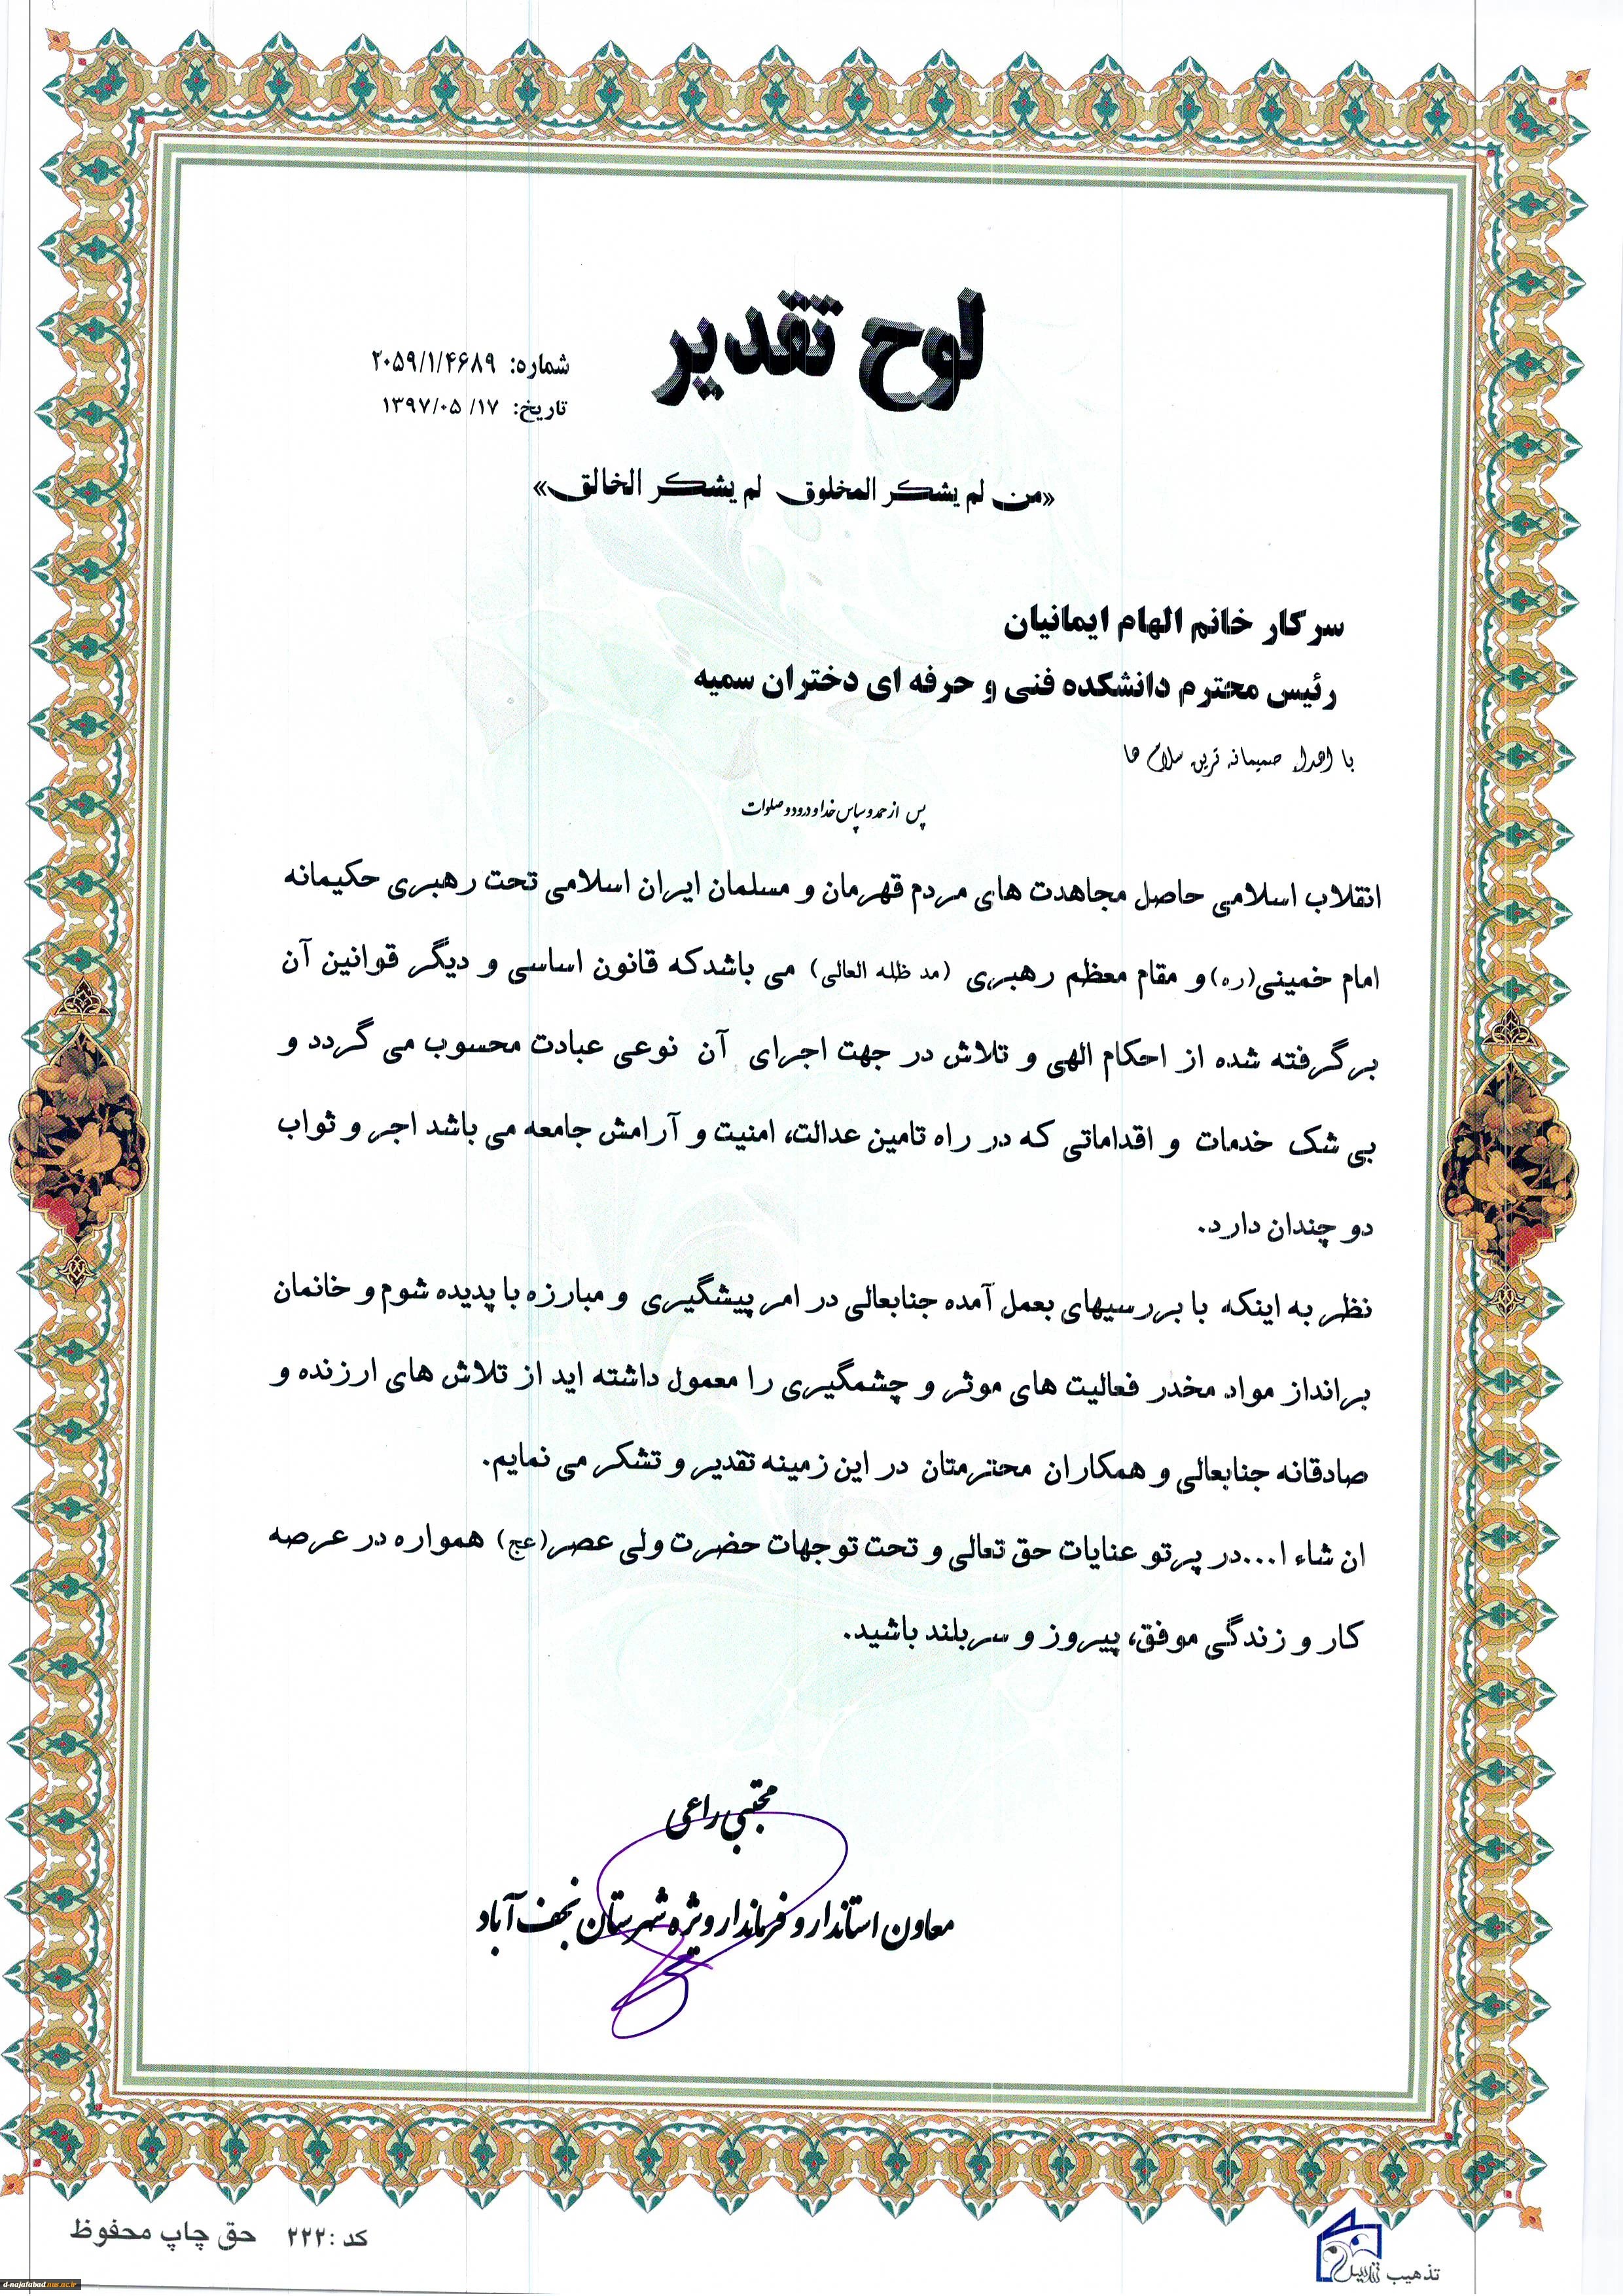 لوح تقدیر
شماره: ۲۰۵۹/۱/۴۶۸۹
تاریخ: ۱۳۹۷/۰۵/۱۷
«من لم یشکر المخلوق لم یشکر الخالق»
سرکار خانم الهام ایمانیان
رئیس محترم دانشکده فنی و حرفه ای دختران سمیه
با اهداء صمیمانه ترین سلام ها
پس از حمد و سپاس خدا و درود و صلوات
انقلاب اسلامی حاصل مجاهدت های مردم قهرمان و مسلمان ایران اسلامی تحت رهبری حکیمانه
امام خمینی(ره) و مقام معظم رهبری (مد ظله العالی) می باشدکه قانون اساسی و دیگر قوانین آن
برگرفته شده از احکام الهی و تلاش در جهت اجرای آن نوعی عبادت محسوب می گردد و
بی شک خدمات و اقداماتی که در راه تامین عدالت، امنیت و آرامش جامعه می باشد اجر و ثواب
دو چندان دارد.
نظر به اینکه با بررسیهای بعمل آمده جنابعالی در امر پیشگیری و مبارزه با پدیده شوم و خانمان
برانداز مواد مخدر فعالیت های موثر و چشمگیری را معمول داشته اید از تلاش های ارزنده و
صادقانه جنابعالی و همکاران محترمتان در این زمینه تقدیر و تشکر می نمایم.
ان شاء ا...در پرتو عنایات حق تعالی و تحت توجهات حضرت ولی عصر(عج) همواره در عرصه
کار و زندگی موفق، پیروز و سربلند باشید.
مجتبی راعی
معاون استاندار و فرماندار ویژه شهرستان نجف آباد
کد :۲۲۲ حق چاپ محفوظ
تذهیب
d-najafabad.nus.ac.ir